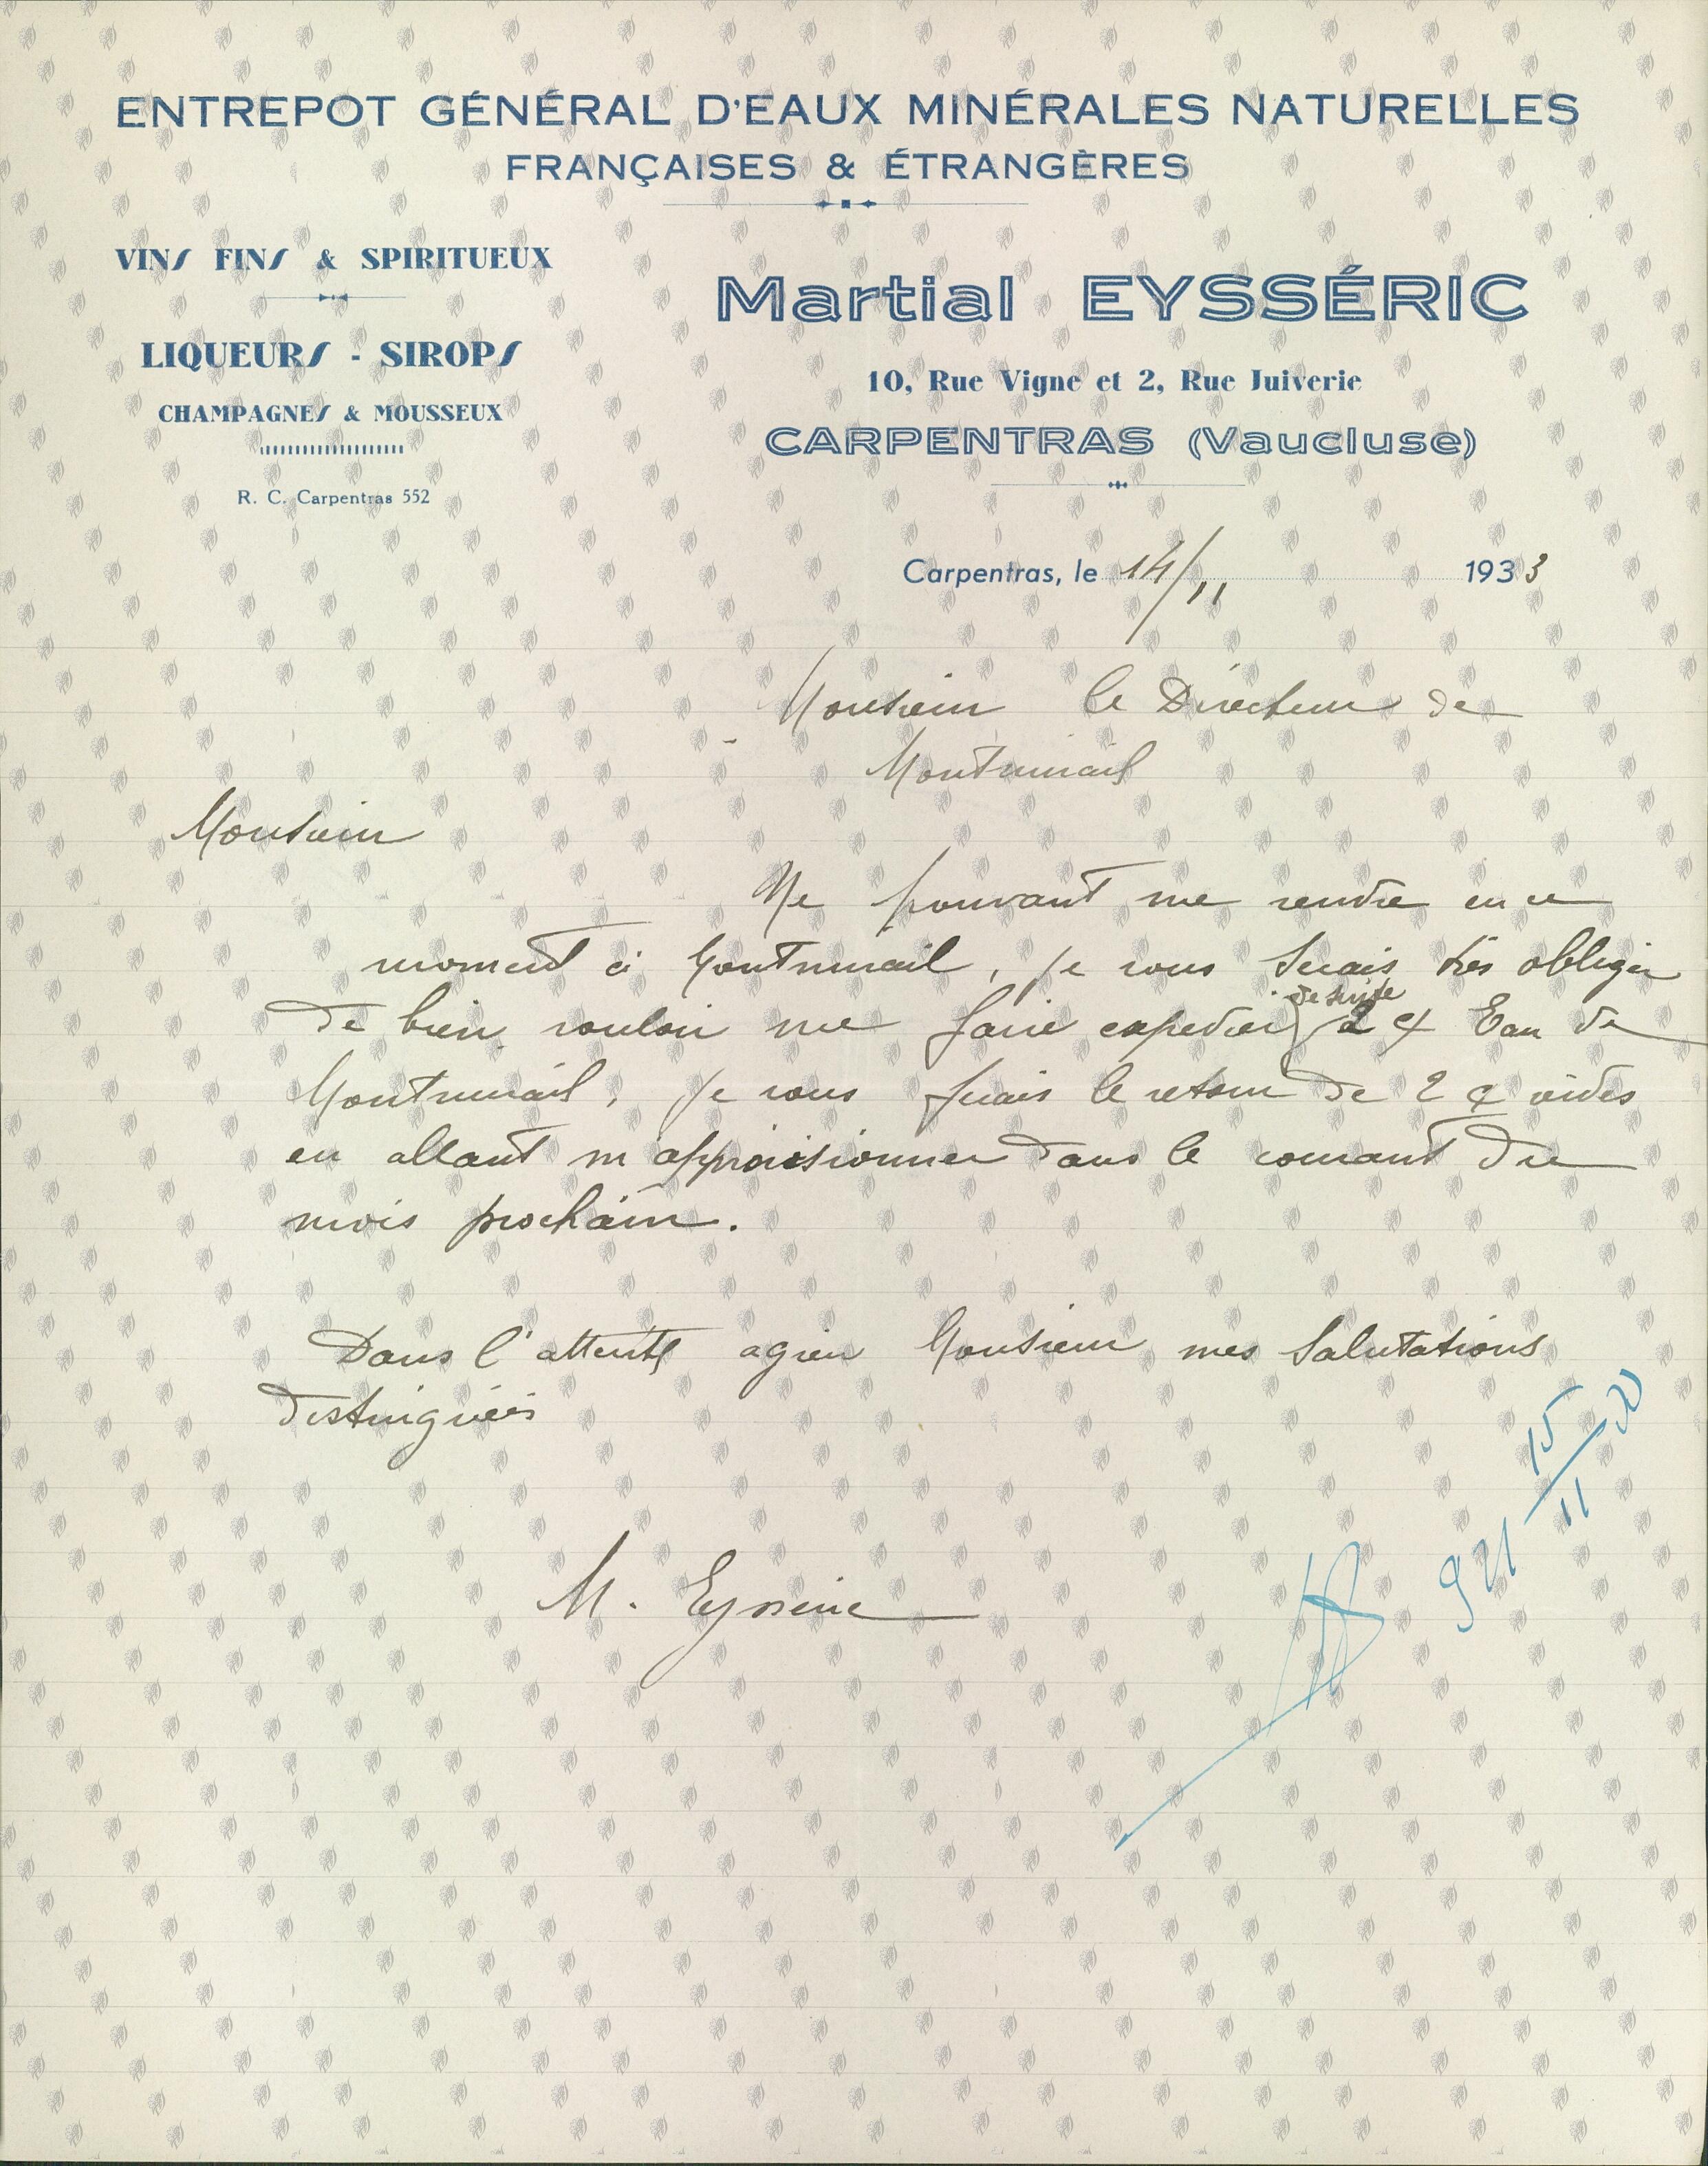 ENTREPOT GÉNÉRAL D'EAUX MINÉRALES NATURELLES
FRANÇAISES & ÉTRANGÈRES
VINS FINS & SPIRITUEUX
LIQUEURS - SIROPS
CHAMPAGNES & MOUSSEUX
R. C. Carpentras 552
Martial EYSSÉRIC
10, Rue Vigne et 2, Rue Juiverie
CARPENTRAS (Vaucluse)
Carpentras, le 14/11 1933
Monsieur le Directeur de
Montmirail
Monsieur
Ne pouvant me rendre en ce
moment à Montmirail, je vous serais très obliger
de bien vouloir me faire expedier de suite 2 c/ Eau de
Montmirail, je vous ferais le retour de 2 c/ vides
en allant m'approvisionner dans le courant du
mois prochain.
Dans l'attente agréer Monsieur mes Salutations
distinguées
M. Eysséric
921 15/11